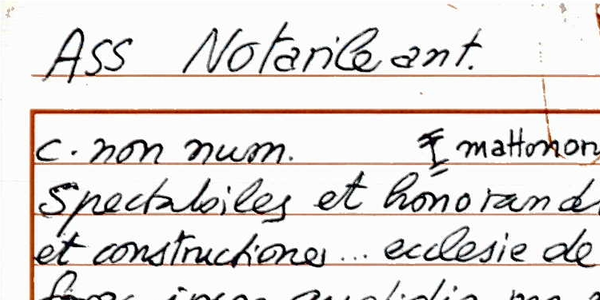 Ass Notarile ant.
c. non num. I mattonon
Spectabiles et honorand
et constructiones ... ecclesie de